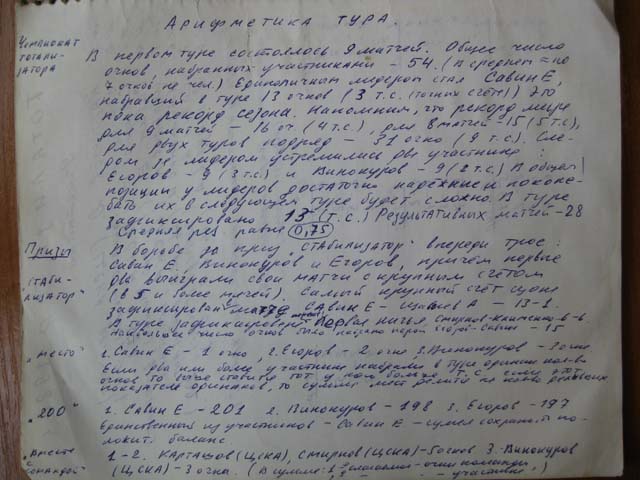 Арифметика тура.
Чемпионат тотали-
затора
В первом туре состоялось 9 матчей. Общее число
очков, набранных участниками - 54. (В среднем = по
7 очков на чел.) Единоличным лидером стал Савин Е,
набравший в туре 13 очков (3 т.с. (точных счёта)) Это
пока рекорд сезона. Напомним, что рекорд мира
для 9 матчей - 16 оч (4 т.с.), для 8 матчей - 15 (5 т.с.),
для двух туров подряд - 31 очко (9 т.с.). Сле-
дом за лидером устремились два участника:
Егоров - 9 (3 т.с.) и Винокуров - 9 (2 т.с.) В общем
позиции у лидеров достаточно надёжные и поколе-
бать их в следующем туре будет сложно. В туре
зафиксировано 13 (т.с.) Результативных матчей - 28
Средняя рез. равна 0,75
Призы
"Стаби-
лизатор"
В борьбе за приз "Стабилизатор" впереди трое:
Савин Е, Винокуров и Егоров, причём первые
два выиграли свои матчи с крупным счётом
(в 5 и более мячей). Самый крупный счёт
зафиксирован в матче Савин Е - А - 13-1.
В туре зафиксирована первая ничья Смирнов - 6-6
Наибольшее число очков было набрано парой Егоров - Савин - 15
"место"
1. Савин Е - 1 очко, 2. Егоров - 2 очка 3. Винокуров - 3 очка
Если два или более участника набрали в туре одинак. кол-во
очков то выше ставится тот у кого больше т.с., если этот
показатель одинаков, то сумма мест делится на кол-во
"200"
1. Савин Е - 201 2. Винокуров - 198 3. Егоров - 197
Единственный из участников - Савин Е - сумел сохранить по-
ложит. баланс
"Вместе с
командой"
1-2. Карташов (ЦСКА), Смирнов (ЦСКА) - 5 очков 3. Винокуров
(ЦСКА) - 3 очка. (В сумме: 1. - очки команды
участник.)